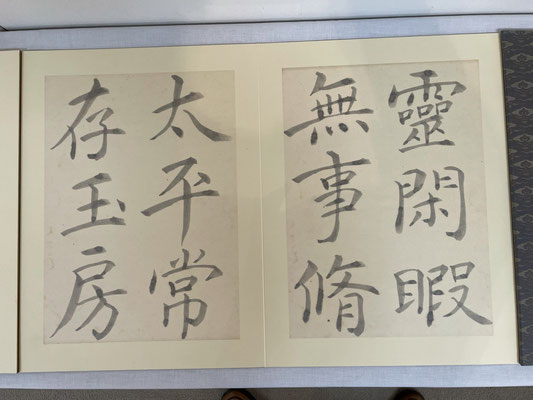 靈閑暇
無事脩
太平常
存玉房